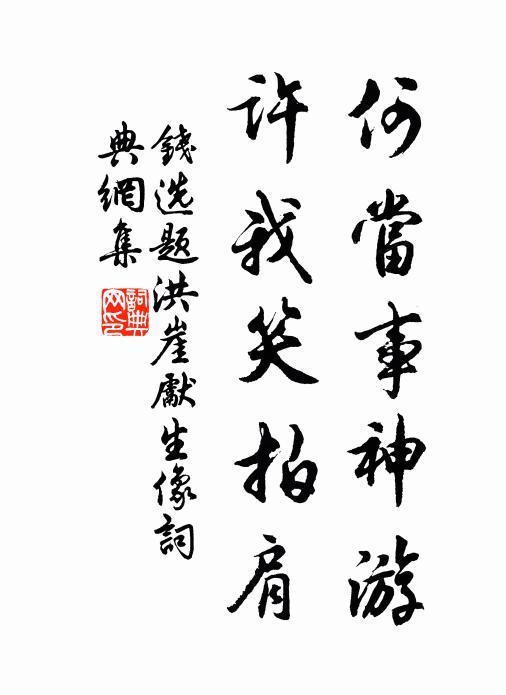 何當事神游
許我笑拍肩
錢选题洪崖獻生像詞
典網集
詞典网印